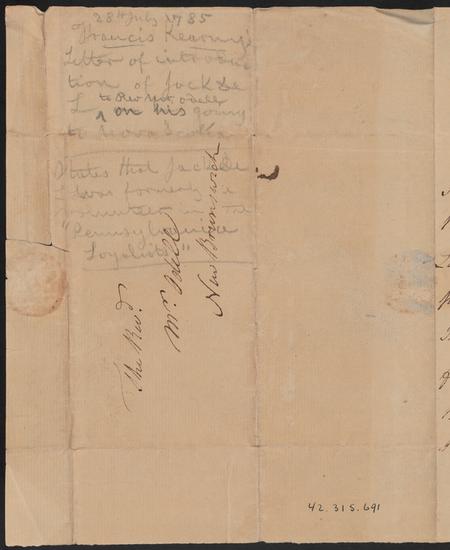 28th July 1785
Francis Kearney's
Letter of introduc
tion of Jack de
L ^ to Rev Mr. Odell on his going
to Nova Scotia
States that Jack de
L was formerly a
volunteer in the
"Pennsylvania
Loyalists"
The Revd.
Mr. Odell
New Brunswick
42.315.691